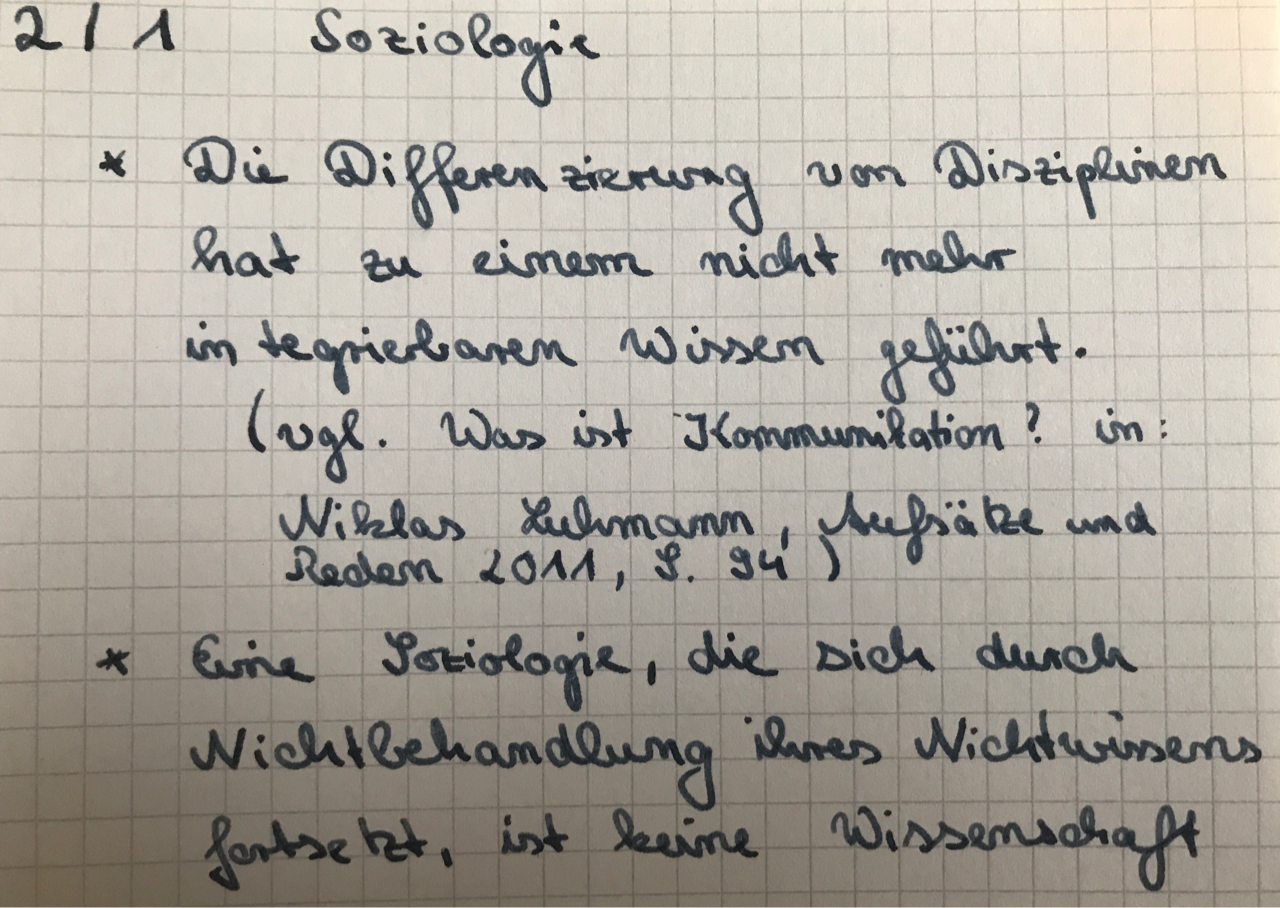 2/1 Soziologie
* Die Differenzierung von Disziplinen
hat zu einem nicht mehr
integrierbaren Wissen geführt.
(vgl. Was ist Kommunikation? in:
Niklas Luhmann, Aufsätze und
Reden 2011, S. 94)
* Eine Soziologie, die sich durch
Nichtbehandlung ihres Nichtwissens
fortsetzt, ist keine Wissenschaft